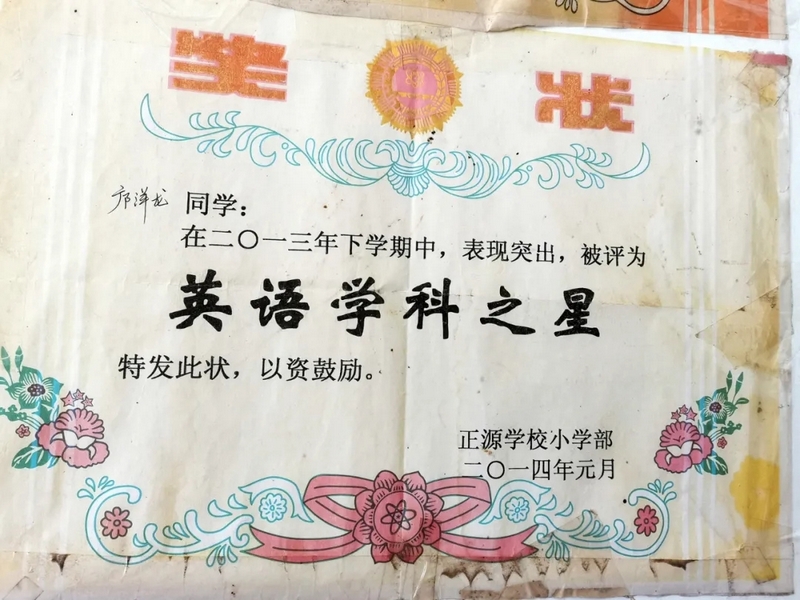 奖状
邝洋龙 同学：
在二〇一三年下学期中，表现突出，被评为
英语学科之星
特发此状，以资鼓励。
正源学校小学部
二〇一四年元月